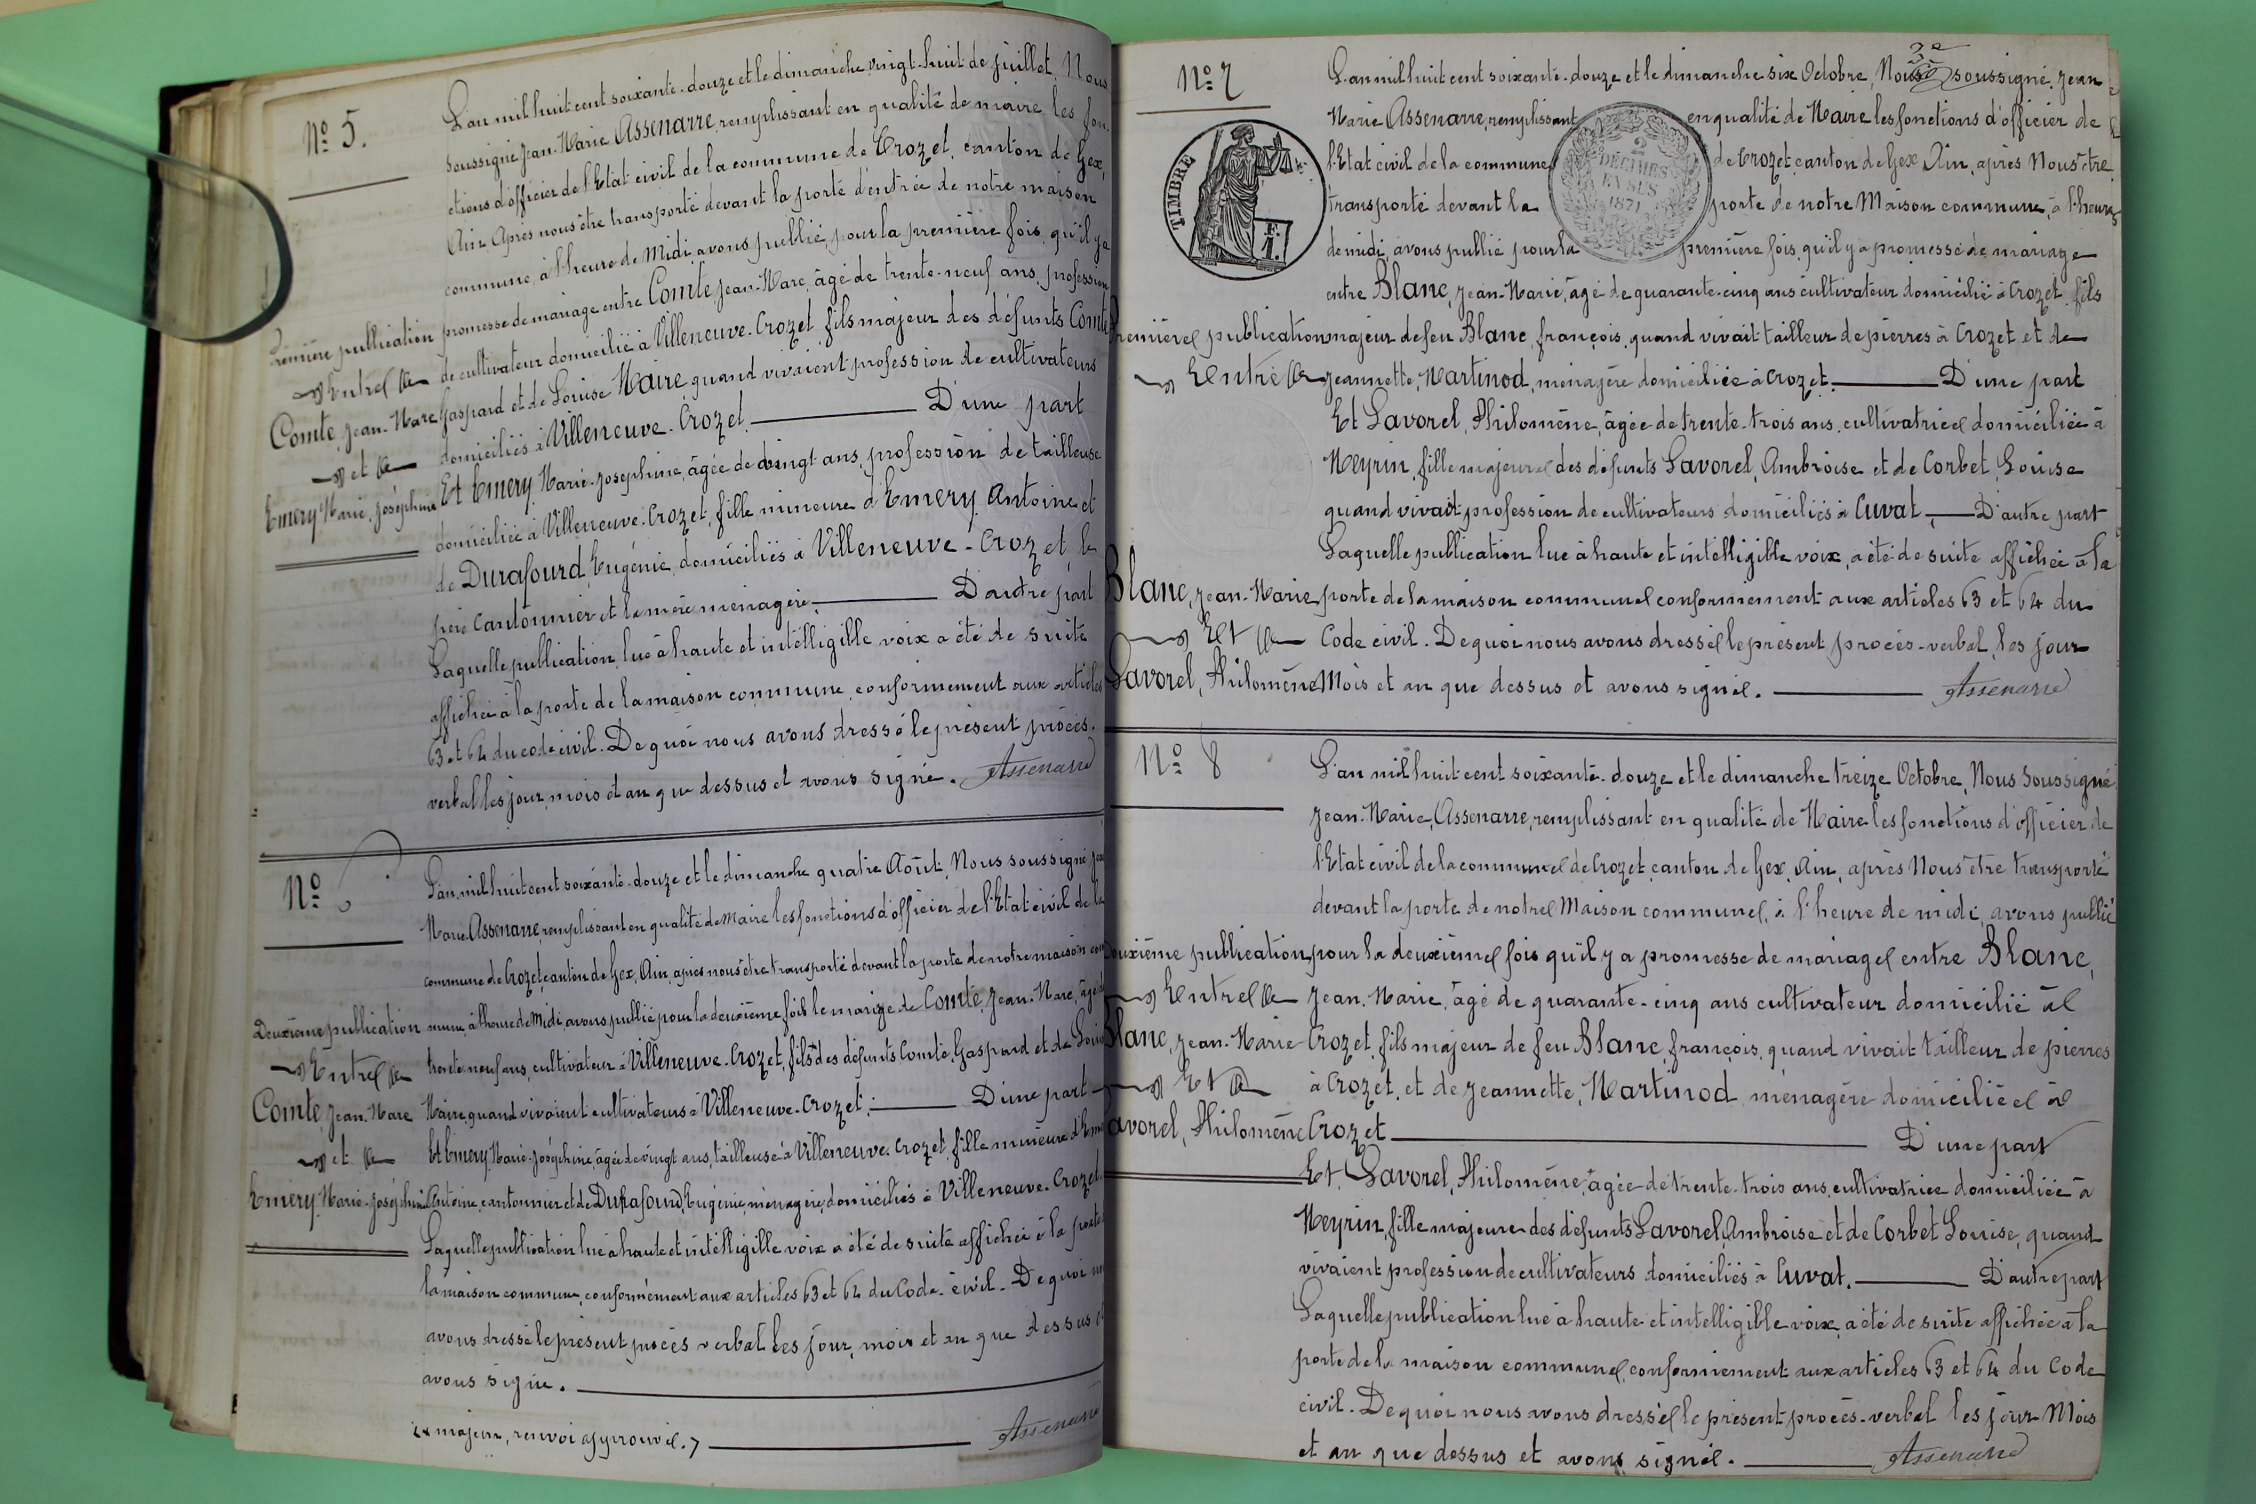 Nº 5.
L'an mil huit cent soixante-douze et le dimanche vingt-huit de juillet, Nous
soussigné Jean-Marie Assenarre, remplissant en qualité de maire les fon-
ctions d'officier de l'Etat civil de la commune de Crozet, canton de Gex,
Ain. Après nous être transporté devant la porte d'entrée de notre maison
commune, à l'heure de Midi, avons publié, pour la première fois, qu'il y a
Première publication
promesse de mariage entre Comte Jean-Marc, âgé de trente-neuf ans, profession
Entre
de cultivateur domicilié à Villeneuve-Crozet, fils majeur des défunts Comte
Comte, Jean-Marc
Gaspard et de Louise Maire, quand vivaient profession de cultivateurs
et
domiciliés à Villeneuve-Crozet. D'une part
Emery Marie-Joséphine
Et Emery, Marie-Joséphine, âgée de vingt ans, profession de tailleuse
domiciliée à Villeneuve-Crozet, fille mineure d'Emery Antoine et
de Durafourd, Eugénie, domiciliés à Villeneuve-Crozet, le
père Cantonnier et la mère ménagère. D'autre part
Laquelle publication lue à haute et intelligible voix a été de suite
affichée à la porte de la maison commune, conformement aux articles
63 et 64 du code civil. De quoi nous avons dressé le présent procès-
verbal les jour, mois et an que dessus et avons signé. Assenarre
Nº 6
L'an mil huit cent soixante-douze et le dimanche quatre Août, Nous soussigné Jean
Marie Assenarre, remplissant en qualité de Maire les fonctions d'officier de l'Etat civil de la
commune de Crozet, canton de Gex, Ain, après nous être transporté devant la porte de notre maison com
Deuxième publication
mune, à l'heure de Midi, avons publié pour la deuxième fois le mariage de Comte, Jean-Marc, âgé de
Entre
trente-neuf ans, cultivateur à Villeneuve-Crozet, fils des défunts Comte, Gaspard et de Louise
Comte, Jean-Marc
Maire, quand vivaient cultivateurs à Villeneuve-Crozet. D'une part
et
Et Emery, Marie-Joséphine âgée de vingt ans, tailleuse à Villeneuve-Crozet, fille mineure d'Emery
Emery, Marie-Joséphine
Antoine, cantonnier et de Durafourd, Eugénie, ménagère, domiciliés à Villeneuve-Crozet.
Laquelle publication lue à haute et intelligible voix a été de suite affichée à la porte
la maison commune, conformément aux articles 63 et 64 du Code civil. De quoi nous
avons dressé le présent procès verbal les jour, mois et an que dessus et
avons signé.
majeur, renvoi approuvé. Assenarre
Nº 7
L'an mil huit cent soixante-douze et le dimanche six Octobre, Nous soussigné, Jean
Marie Assenarre, remplissant en qualité de Maire les fonctions d'officier de
l'Etat civil de la commune de Crozet, canton de Gex, Ain, après Nous être
transporté devant la porte de notre Maison commune, à l'heure
de midi, avons publié pour la première fois, qu'il y a promesse de mariage
TIMBRE
F. 1.
2 DÉCIMES EN SUS 1871
entre Blanc, Jean-Marie, âgé de quarante-cinq ans cultivateur domicilié à Crozet, fils
Première publication
majeur de feu Blanc, françois, quand vivait tailleur de pierres à Crozet et de
Entre
Jeannette, Martinod, ménagère domiciliée à Crozet. D'une part
Et Lavorel, Philomène, âgée de trente-trois ans, cultivatrice domiciliée à
Meyrin, fille majeure des défunts Lavorel, Ambroise et de Corbet, Louise
quand vivait profession de cultivateurs domiciliés à Cuvat. D'autre part
Laquelle publication lue à haute et intelligible voix, a été de suite affichée à la
Blanc, Jean-Marie
porte de la maison commune conformement aux articles 63 et 64 du
Et
Code civil. De quoi nous avons dressé le présent procès-verbal, les jour
Lavorel, Philomène
Mois et an que dessus et avons signé. Assenarre
Nº 8
L'an mil huit cent soixante-douze et le dimanche treize Octobre, Nous soussigné
Jean-Marie, Assenarre, remplissant en qualité de Maire les fonctions d'officier de
l'Etat civil de la commune de Crozet, canton de Gex, Ain, après Nous être transporté
devant la porte de notre Maison commune, à l'heure de midi, avons publié
Deuxième publication
pour la deuxième fois qu'il y a promesse de mariage entre Blanc,
Entre
Jean-Marie, âgé de quarante-cinq ans cultivateur domicilié à
Blanc, Jean-Marie
Crozet, fils majeur de feu Blanc, françois, quand vivait tailleur de pierres
Et
à Crozet, et de Jeannette, Martinod, ménagère domiciliée à
Lavorel, Philomène
Crozet D'une part
Et, Lavorel, Philomène, âgée de trente-trois ans, cultivatrice domiciliée à
Meyrin, fille majeure des défunts Lavorel, Ambroise et de Corbet Louise, quand
vivaient profession de cultivateurs domiciliés à Cuvat. D'autre part
Laquelle publication lue à haute et intelligible voix, a été de suite affichée à la
porte de la maison commune, conformement aux articles 63 et 64 du Code
civil. De quoi nous avons dressé le présent procès-verbal les jour Mois
et an que dessus et avons signé. Assenarre